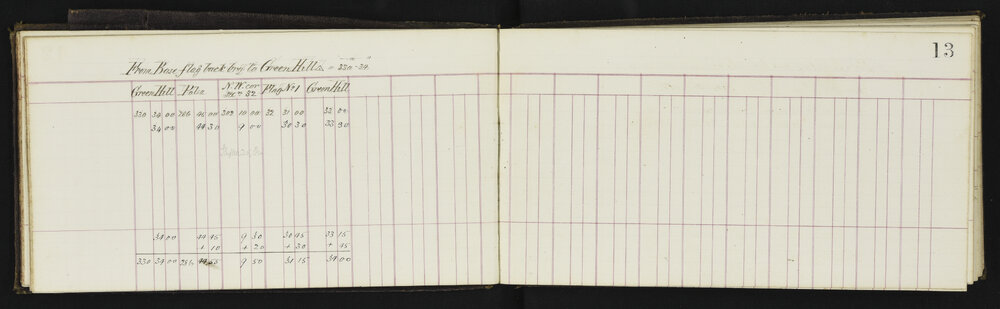 13
From Base flag back brg to Green Hills = 330°-34'
Green Hill Pole N.W. cor Flag No 1 Green Hill
82
330 34 00 45 00 302 10 00 32 31 00 33 00
34 00 44 30 9 00 30 30 33 30
34 00 44 45 9 30 30 45 33 15
+ 10 + 20 + 30 + 45
330 34 00 256 44 55 9 50 31 15 34 00